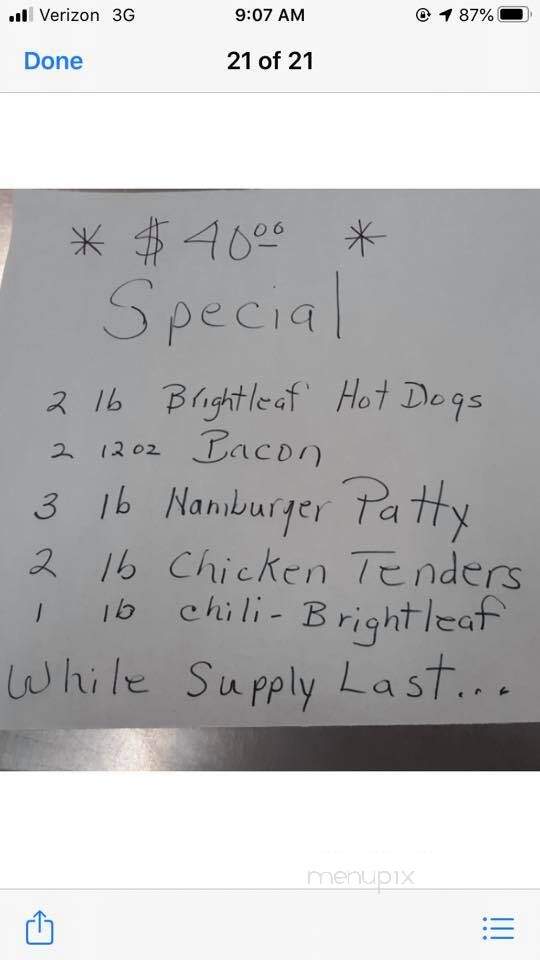 Verizon 3G 9:07 AM 87%
Done 21 of 21
* $40.00 *
Special
2 lb Brightleaf Hot Dogs
2 12 oz Bacon
3 lb Hamburger Patty
2 lb Chicken Tenders
1 lb chili - Brightleaf
While Supply Last...
menupix